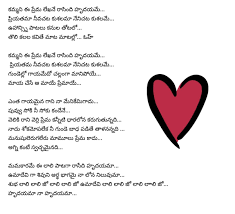 కమ్మని ఈ ప్రేమ లేఖనే రాసింది హృదయమే...
ప్రియతమా నీవచట కుశలమా నేనిచట కుశలమే...
ఊహన్ని పాటలు కనుల తోటలో...
తొలి కలల కవితే మాట మాటల్లో... ఓహో
కమ్మని ఈ ప్రేమ లేఖనే రాసింది హృదయమే...
ప్రియతమ నీవచట కుశలమా నేనిచట కుశలమే...
గుండెల్లో గాయమేమో చల్లంగా మానిపోయే...
మాయ చేసే ఆ మాయే ప్రేమాయే...
ఎంత గాయమైన గాని నా మేనికేమిగాదు...
పువ్వు సోకి నీ సోకు కందేనే...
వెలికి రాని వెర్రి ప్రేమ కన్నీటి ధారలోన కరుగుతున్నది...
నాదు శోకమోపలేక నీ గుండె బాధ పడితే తాళనన్నది...
మనుషులెరుగలేరు మామూలు ప్రేమ కాదు...
అగ్ని కంటే స్వచ్ఛమైనది...
మమకారమే ఈ లాలి పాటగా రాసేది హృదయమా...
ఉమాదేవి గా శివుని అర్ధ భాగమై నా లోన నిలువుమా...
శుభ లాలి లాలి జో లాలి లాలి జో ఉమాదేవి లాలి లాలి జో లాలి లాలి జో...
హృదయమా నా హృదయమా...